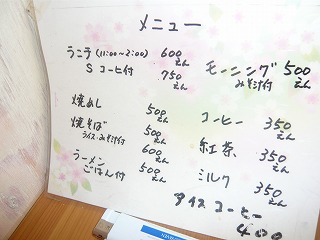 メニュー
ランチ (11:00~2:00) 600えん
S コーヒー付 750えん
焼めし 500えん
焼そば 500えん
ライス・みそ汁付 600えん
ラーメン 500えん
ごはん付
モーニング 500えん
みそ汁付
コーヒー 350えん
紅茶 350えん
ミルク 350えん
アイスコーヒー
400